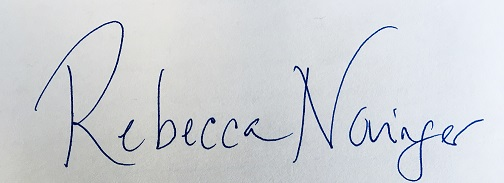 Rebecca Novinger